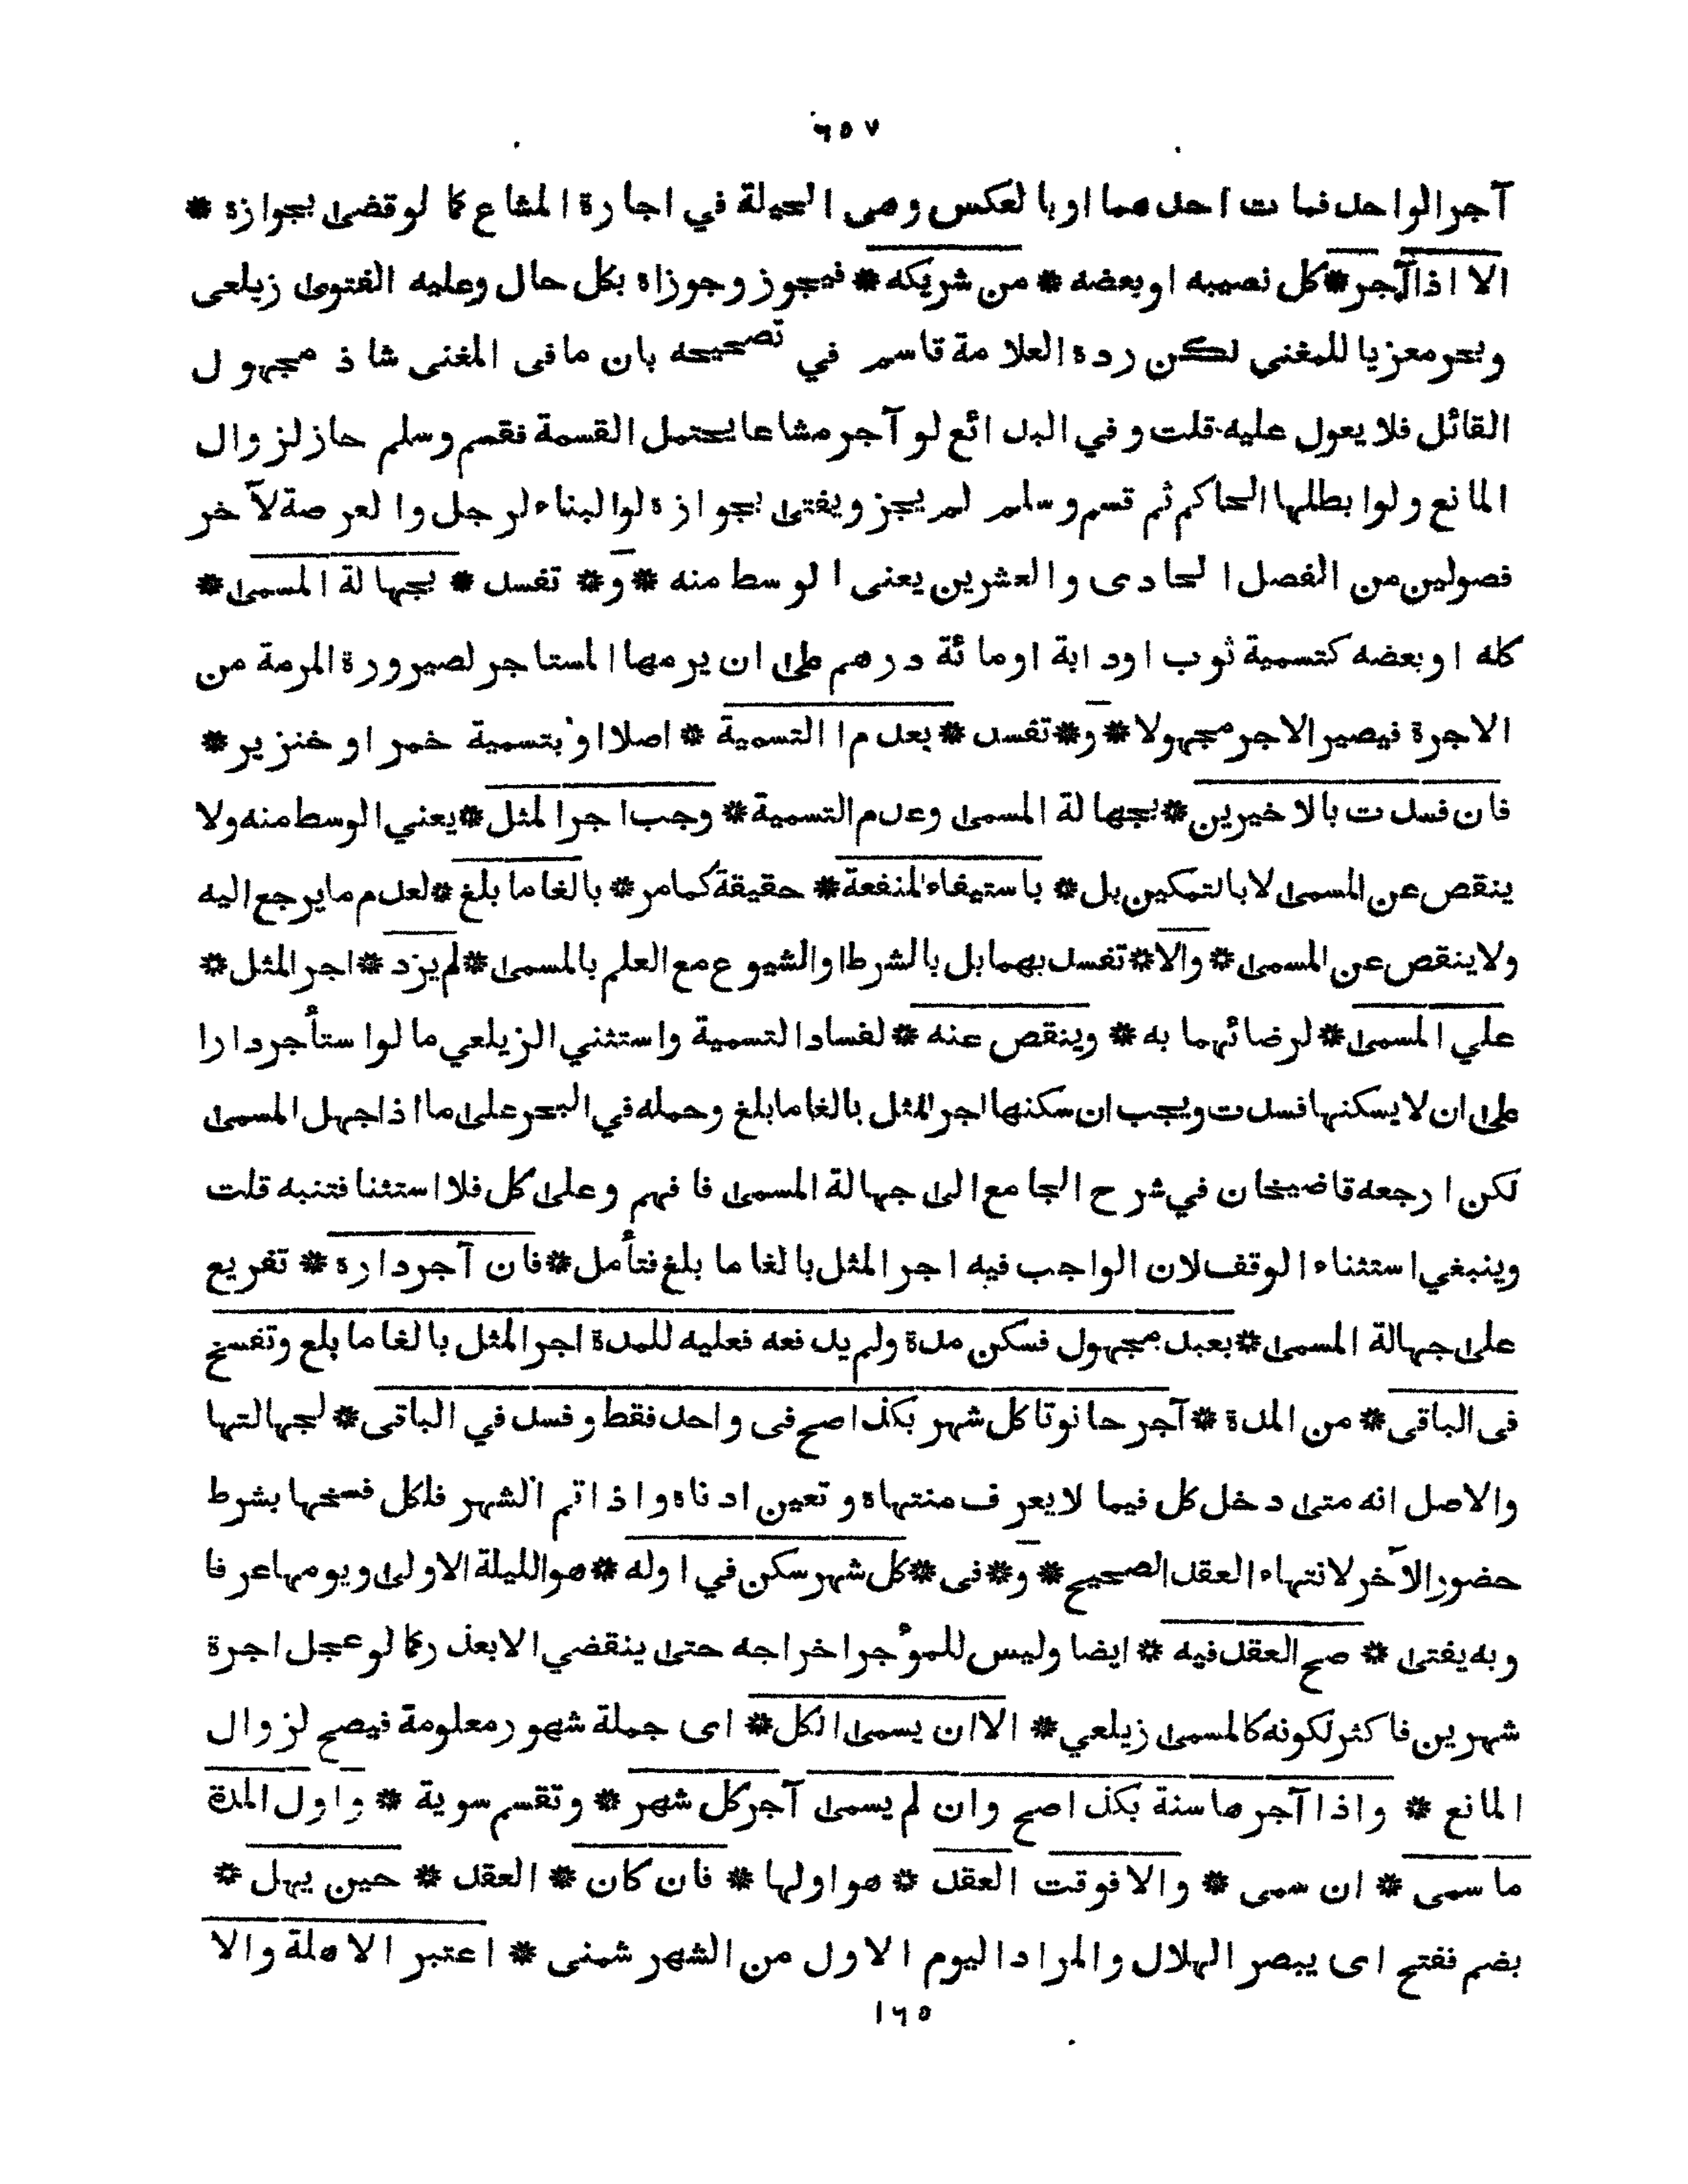 ٦٥٧
آجر الواحد فمات احدهما او بالعكس وهى الحيلة في اجارة المشاع كما لو قضى بجوازه *
الا اذا آجر * كل نصيبه او بعضه * من شريكه * فيجوز وجوزاه بكل حال وعليه الفتوى زيلعى
وبحر معزيا للمغني لكن رده العلامة قاسم في تصحيحه بان مافى المغنى شاذ مجهول
القائل فلا يعول عليه قلت وفي البدائع لو آجر مشاعا يحتمل القسمة فقسم وسلم جاز لزوال
المانع ولو ابطلها الحاكم ثم قسم وسلم لم يجز ويفتى بجوازه لو البناء لرجل والعرصة لآخر
فصولين من الفصل الحادى والعشرين يعنى الوسط منه * و * تفسد * بجهالة المسمى *
كله او بعضه كتسمية ثوب او دابة او مائة درهم على ان يرمها المستاجر لصيرورة المرمة من
الاجرة فيصير الاجر مجهولا * و * تفسد * بعدم التسمية * اصلا او بتسمية خمر او خنزير *
فان فسدت بالاخيرين * بجهالة المسمى وعدم التسمية * وجب اجر المثل * يعني الوسط منه ولا
ينقص عن المسمى لا بالتمكين بل * باستيفاء المنفعة * حقيقة كما مر * بالغا ما بلغ * لعدم ما يرجع اليه
ولا ينقص عن المسمى * والا * تفسد بهما بل بالشرط او الشيوع مع العلم بالمسمى * لم يزد * اجر المثل *
علي المسمى * لرضائهما به * وينقص عنه * لفساد التسمية واستثني الزيلعي ما لو استأجر دارا
على ان لا يسكنها فسدت ويجب ان سكنها اجر المثل بالغا ما بلغ وحمله في البحر على ما اذا جهل المسمى
لكن ارجعه قاضيخان في شرح الجامع الى جهالة المسمى فافهم وعلى كل فلا استثنا فتنبه قلت
وينبغي استثناء الوقف لان الواجب فيه اجر المثل بالغا ما بلغ فتأمل * فان آجر داره * تفريع
على جهالة المسمى * بعبد مجهول فسكن مدة ولم يدفعه فعليه للمدة اجر المثل بالغا ما بلع وتفسخ
فى الباقى * من المدة * آجر حانوتا كل شهر بكذا صح فى واحد فقط وفسد في الباقى * لجهالتها
والاصل انه متى دخل كل فيما لا يعرف منتهاه وتعين ادناه واذا تم الشهر فلكل فسخها بشرط
حضور الآخر لانتهاء العقد الصحيح * و * فى * كل شهر سكن في اوله * هو الليلة الاولى ويومها عرفا
وبه يفتى * صح العقد فيه * ايضا وليس للمؤجر اخراجه حتى ينقضي الا بعذر كما لو عجل اجرة
شهرين فاكثر لكونه كالمسمى زيلعي * الا ان يسمى الكل * اى جملة شهور معلومة فيصح لزوال
المانع * واذا آجرها سنة بكذا صح وان لم يسمى آجر كل شهر * وتقسم سوية * واول المدة
ما سمى * ان سمى * والا فوقت العقد * هو اولها * فان كان * العقد * حين يهل *
بضم ففتح اى يبصر الهلال والمراد اليوم الاول من الشهر شمنى * اعتبر الاهلة والا
١٦٥